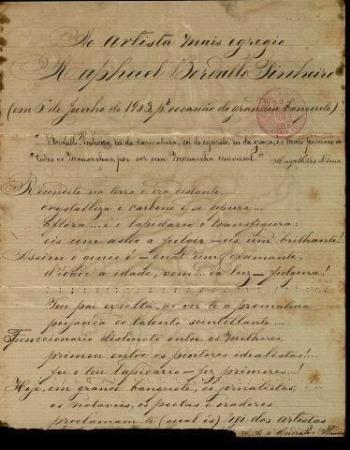 Ao artista mais egregio
Raphael Bordallo Pinheiro
(em 5 de Junho de 1903, pª occasião do grandioso banquete)
"Bordallo Pinheiro, rei da caricatura, rei do espirito, rei da graça, é o mais
todos os Monarchas por ser um Monarcha universal."
Magalhães Lima
Recondito na terra e era distante,
crystalliza o carbone e se depura...
Aflora... e o lapidario o transfigura:
eis um astro a fulgir – eis um brilhante!
Assim o genio é – qual um diamante,
a idade, vem á luz – fulgura!
Teu pai exulta, ao ver-te a prematura
pujança do talento scintillante...
Funccionario distincto entre os melhores,
primou entre os pintores idealistas!...
foi o teu lapidario – fez primores!...
Hoje, em grande banquete, os jornalistas,
os notaveis, os poetas e oradores
proclamam-te (qual és) Rei dos artistas